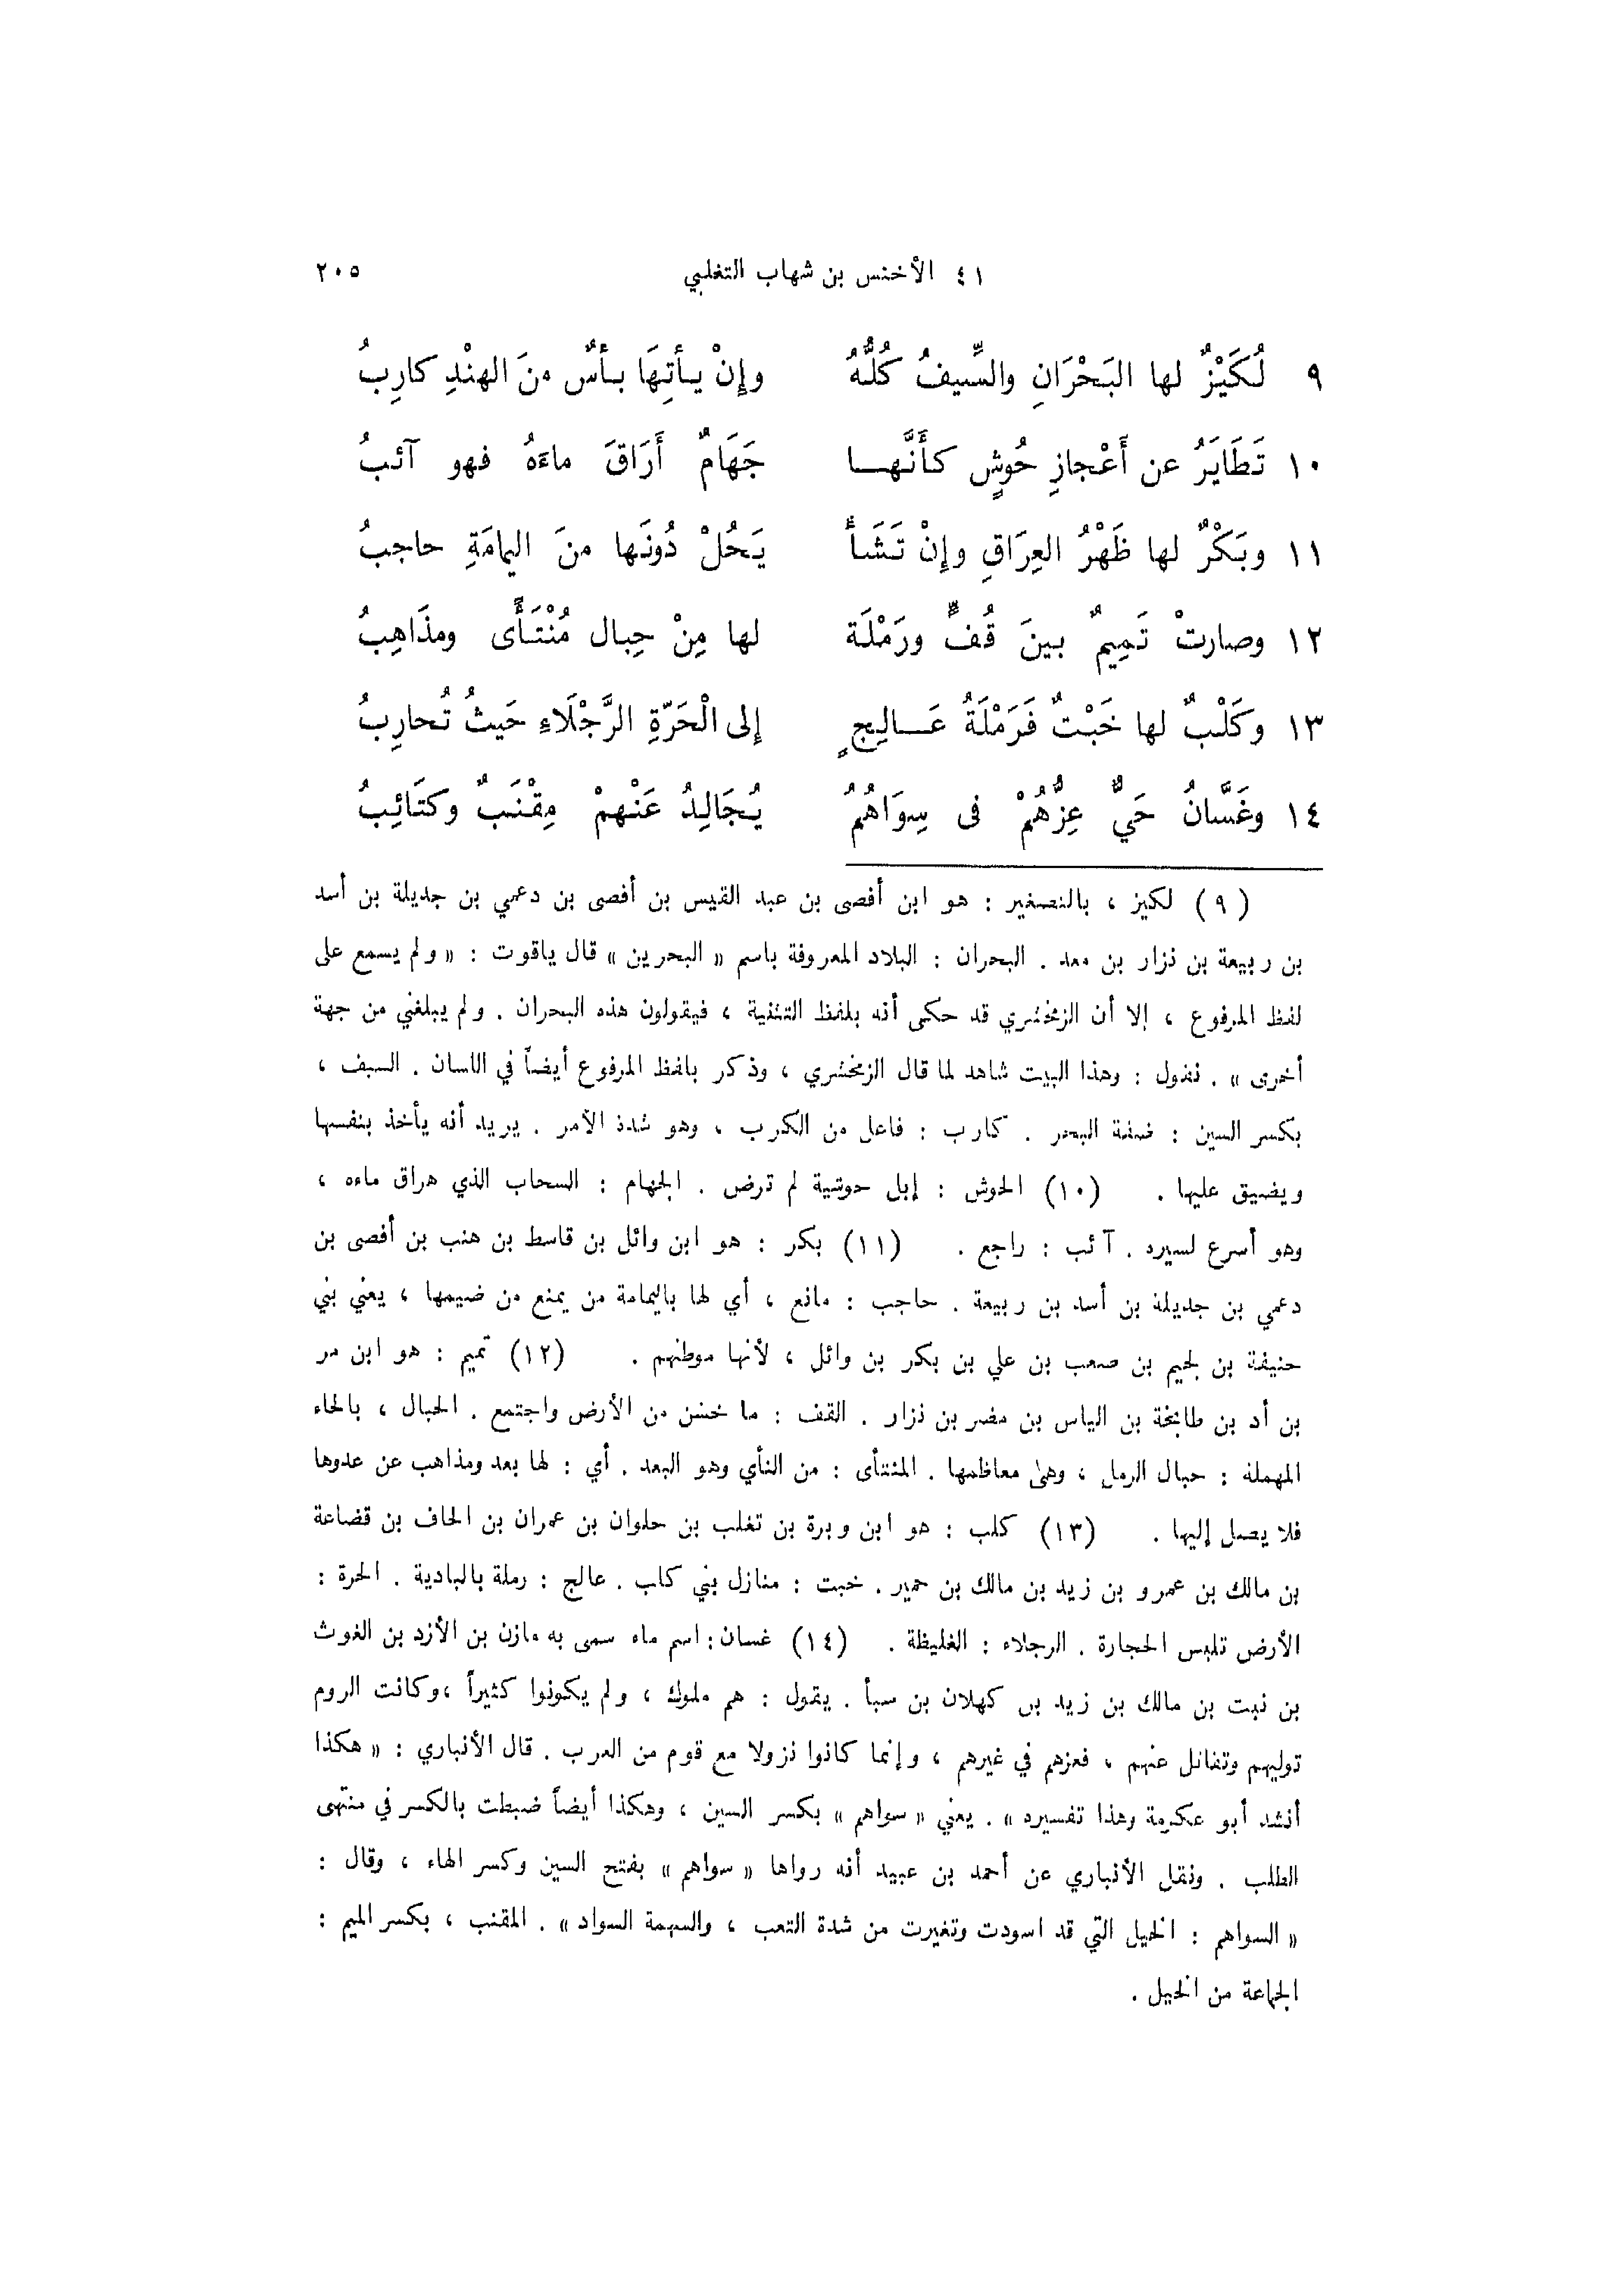 ٤١ الأخنس بن شهاب التغلبي ٢٠٥
٩ لُكَيْزٌ لها البَحْرَانِ والسِّيفُ كُلُّهُ وإِنْ يأتِهَا بأسٌ منَ الهنْدِ كارِبُ
١٠ تَطَايَرُ عن أَعْجازِ حُوشٍ كأَنَّهـا جَهَامٌ أَرَاقَ ماءَهُ فهو آئبُ
١١ وبَكْرٌ لها ظَهْرُ العِرَاقِ وإِنْ تَشَأْ يَحُلْ دُونَها منَ اليمامَةِ حاجبُ
١٢ وصارتْ تَمِيمٌ بينَ قُفٍّ ورَمْلَة لها مِنْ حِبال مُنْتَأًى ومذَاهِبُ
١٣ وكَلْبٌ لها خَبْتٌ فَرَمْلَةُ عَـالِجٍ إِلى الْحَرّةِ الرَّجْلَاءِ حَيثُ تُحارِبُ
١٤ وغَسَّانُ حَيٌّ عِزُّهُمْ فى سِوَاهُمُ يُجَالِدُ عَنْهمْ مِقْنَبٌ وكتَائِبُ
(٩) لكيز ، بالتصغير : هو ابن أفصى بن عبد القيس بن أفصى بن دعمي بن جديلة بن أسد
بن ربيعة بن نزار بن معد . البحران : البلاد المعروفة باسم « البحرين » قال ياقوت : « ولم يسمع على
لفظ المرفوع ، إلا أن الزمخشري قد حكى أنه بلفظ التثنية ، فيقولون هذه البحران . ولم يبلغني من جهة
أخرى » . نقول : وهذا البيت شاهد لما قال الزمخشري ، وذكر بلفظ المرفوع أيضاً في اللسان . السيف ،
بكسر السين : ضفة البحر . كارب : فاعل من الكرب ، وهو شدة الأمر . يريد أنه يأخذ بنفسها
ويضيق عليها . (١٠) الحوش : إبل حوشية لم ترض . الجهام : السحاب الذي هراق ماءه ،
وهو أسرع لسيره . آئب : راجع . (١١) بكر : هو ابن وائل بن قاسط بن هنب بن أفصى بن
دعمي بن جديلة بن أسد بن ربيعة . حاجب : مانع ، أي لها باليمامة من يمنع من ضيمها ، يعني بني
حنيفة بن لجيم بن صعب بن علي بن بكر بن وائل ، لأنها موطنهم . (١٢) تميم : هو ابن مر
بن أد بن طابخة بن الياس بن مضر بن نزار . القف : ما خشن من الأرض واجتمع . الحبال ، بالحاء
المهملة : حبال الرمل ، وهى معاظمها . المنتأى : من النأي وهو البعد . أي : لها بعد ومذاهب عن عدوها
فلا يصل إليها . (١٣) كلب : هو ابن وبرة بن تغلب بن حلوان بن عمران بن الحاف بن قضاعة
بن مالك بن عمرو بن زيد بن مالك بن حمير . خبت : منازل بني كلب . عالج : رملة بالبادية . الحرة :
الأرض تلبس الحجارة . الرجلاء : الغليظة . (١٤) غسان : اسم ماء سمى به مازن بن الأزد بن الغوث
بن نبت بن مالك بن زيد بن كهلان بن سبأ . يقول : هم ملوك ، ولم يكونوا كثيراً ،وكانت الروم
توليهم وتقاتل عنهم ، فعزهم في غيرهم ، وإنما كانوا نزولا مع قوم من العرب . قال الأنباري : « هكذا
أنشد أبو عكرمة وهذا تفسيره » . يعني « سواهم » بكسر السين ، وهكذا أيضاً ضبطت بالكسر في منتهى
الطلب . ونقل الأنباري عن أحمد بن عبيد أنه رواها « سواهم » بفتح السين وكسر الهاء ، وقال :
« السواهم : الخيل التي قد اسودت وتغيرت من شدة التعب ، والسهمة السواد » . المقنب ، بكسر الميم :
الجماعة من الخيل .